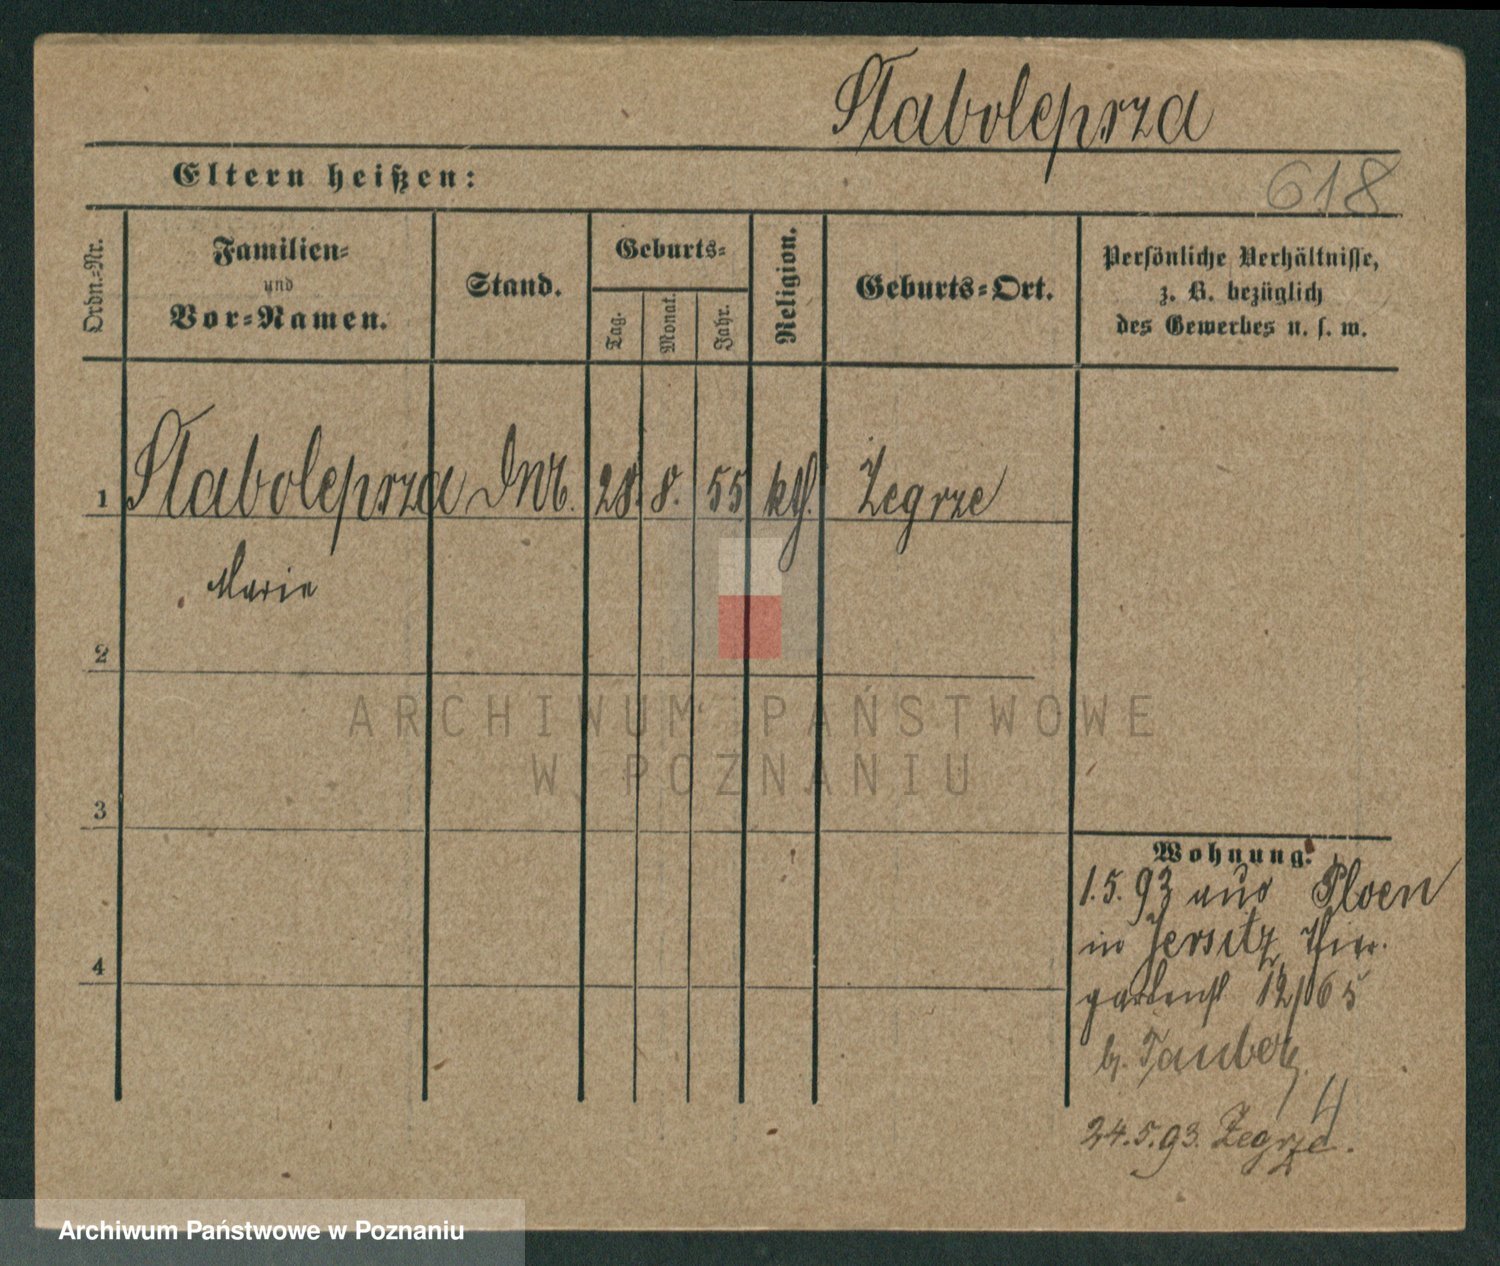 Slaboleprza
Eltern heißen:
618
Ordn.-Nr.
Familien-
und
Vor-Namen.
Stand.
Geburts-
Tag.
Monat.
Jahr.
Religion.
Geburts-Ort.
Persönliche Verhältnisse,
z. B. bezüglich
des Gewerbes u. s. w.
1 Slaboleprza 28. 8. 55 kth. Zegrze
Marie
2
3
4
Wohnung.
1.5.93 aus Ploen
in Jersitz Thier-
gartenst 12/65
b. Tauber
4
24.5.93. Zegrze.
ARCHIWUM PAŃSTWOWE
W POZNANIU
Archiwum Państwowe w Poznaniu